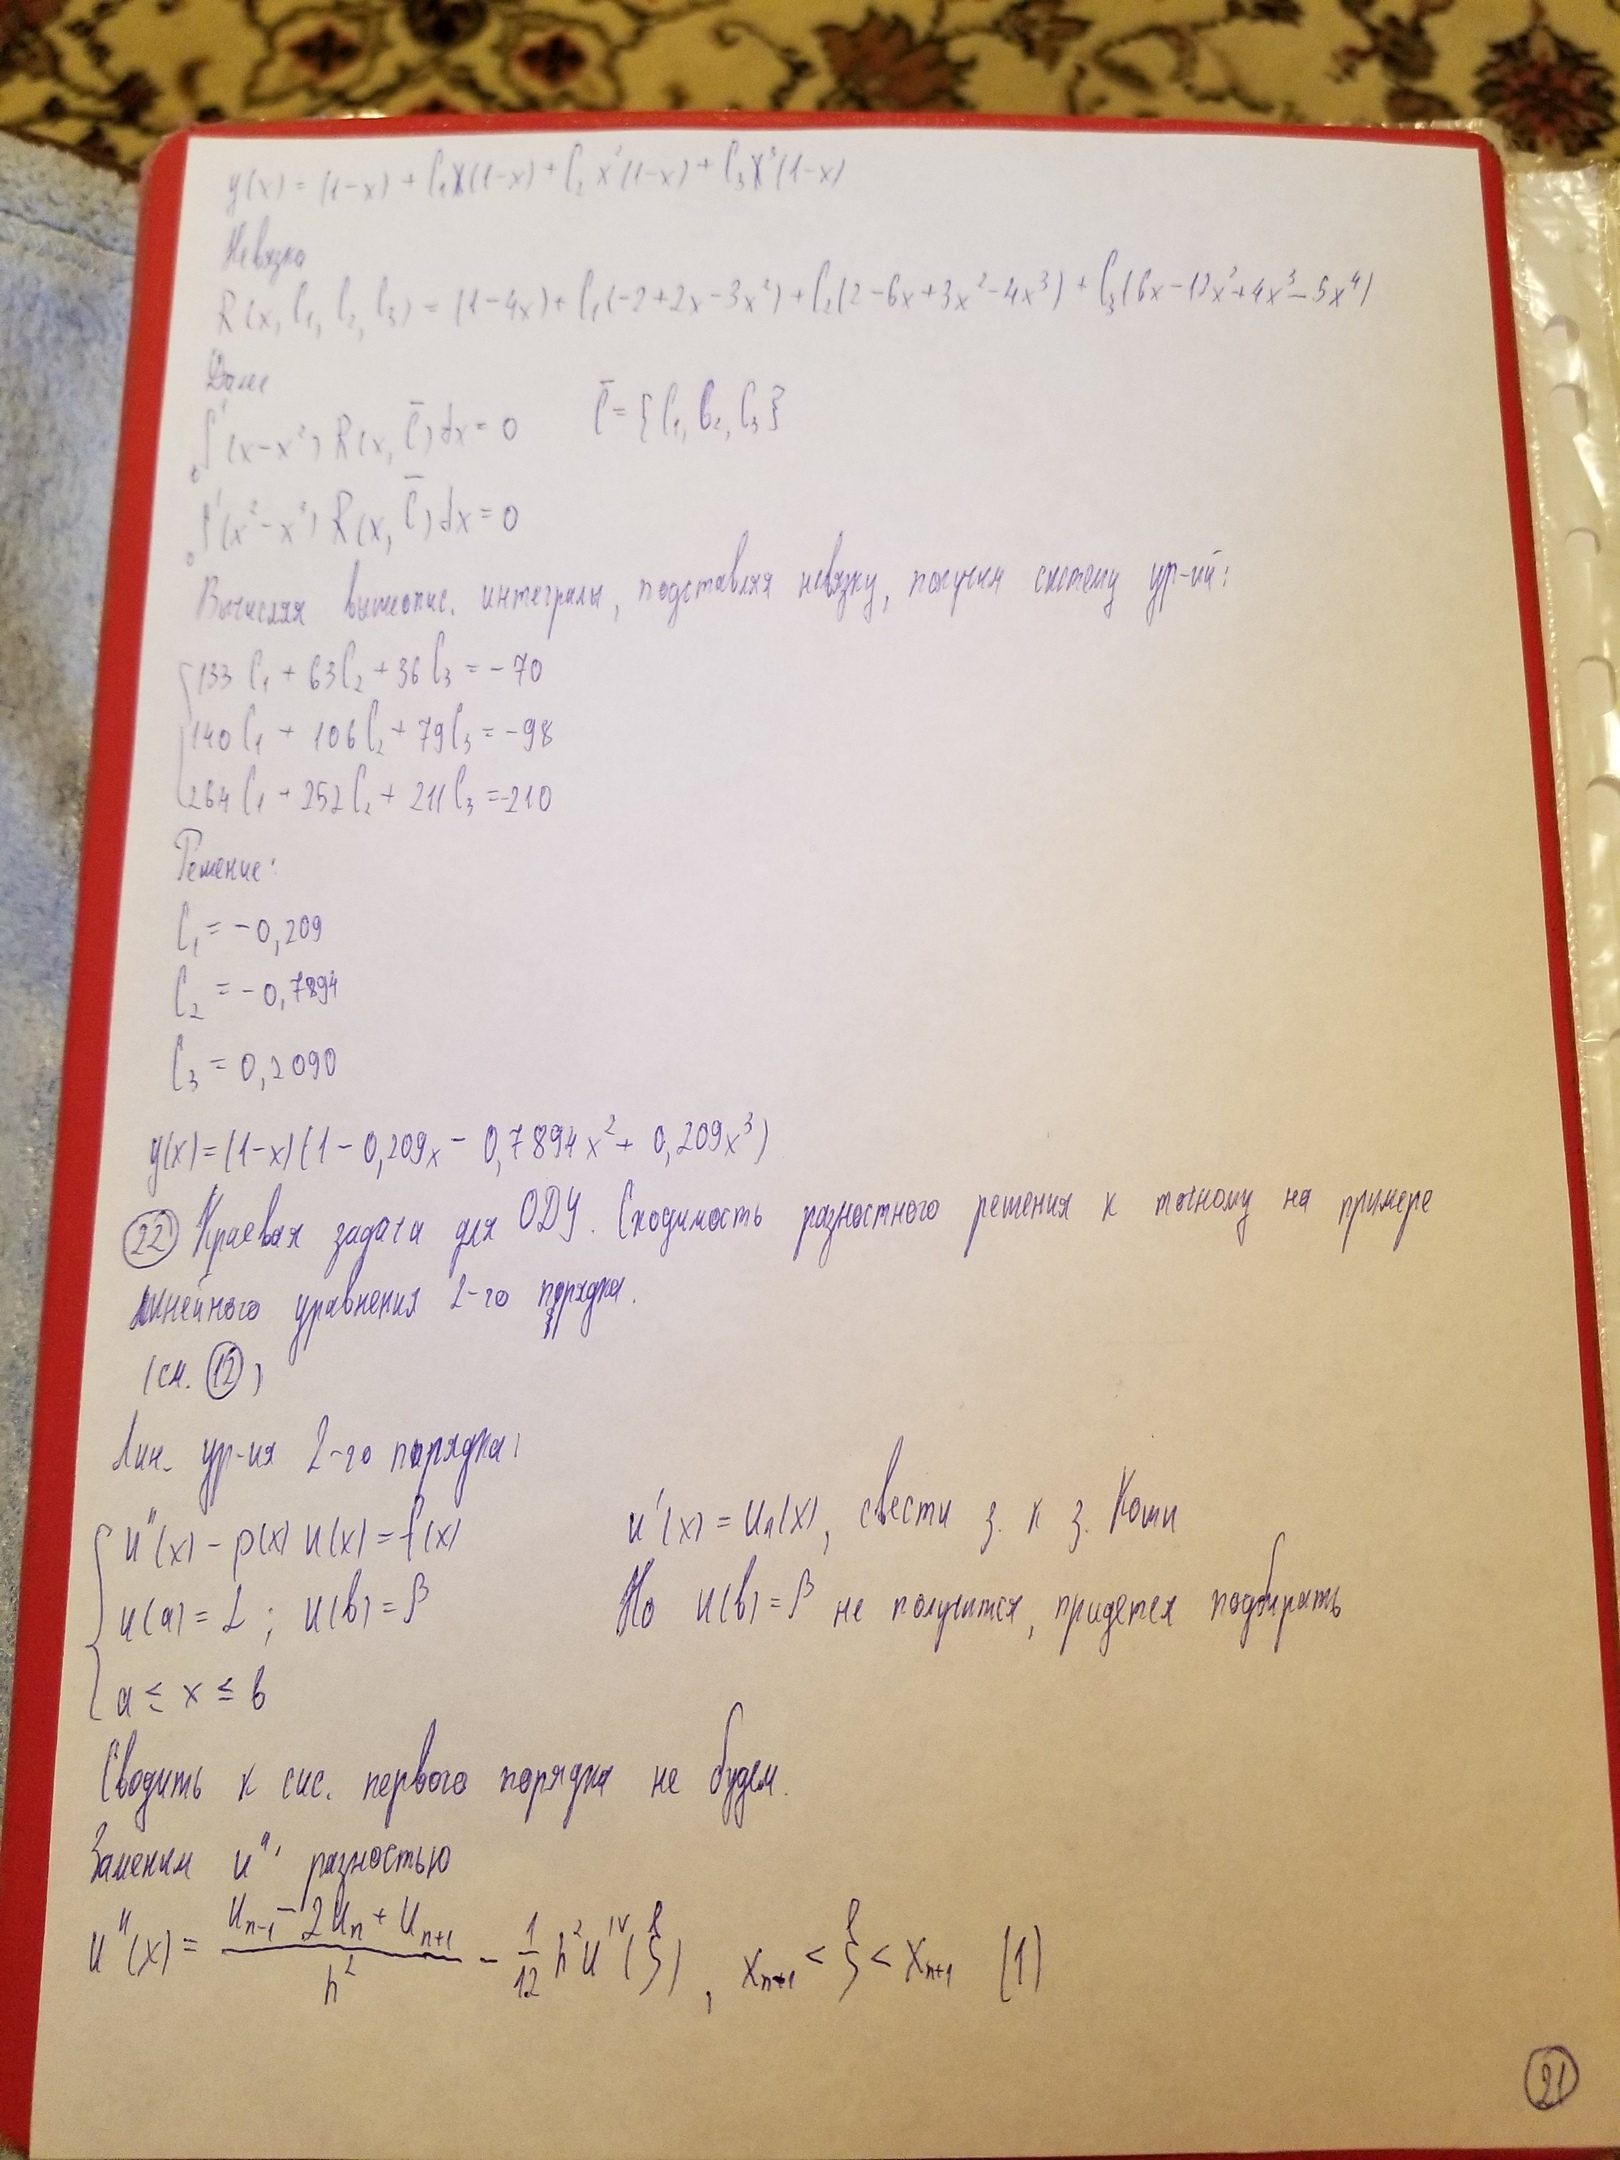 y(x) = (1-x) + C₁x(1-x) + C₂x²(1-x) + C₃x³(1-x)
Невязка
R(x, C₁, C₂, C₃) = (1-4x) + C₁(-2+2x-3x²) + C₂(2-6x+3x²-4x³) + C₃(6x-12x²+4x³-5x⁴)
Далее
∫₀¹(x-x²) R(x, C̄) dx = 0 C̄ = {C₁, C₂, C₃}
∫₀¹(x²-x³) R(x, C̄) dx = 0
Вычисляя вышеопис. интегралы, подставляя невязку, получим систему ур-ий:
133C₁ + 63C₂ + 36C₃ = -70
140C₁ + 106C₂ + 79C₃ = -98
264C₁ + 252C₂ + 211C₃ = -210
Решение:
C₁ = -0,209
C₂ = -0,7894
C₃ = 0,2090
y(x) = (1-x)(1-0,209x - 0,7894x² + 0,209x³)
22 Краевая задача для ОДУ. Сходимость разностного решения к точному на примере
линейного уравнения 2-го порядка.
(см. 12)
Лин. ур-ия 2-го порядка:
u''(x) - p(x) u(x) = f(x) u'(x) = u₁(x), свести з. к з. Коши
u(a) = α; u(b) = β Но u(b) = β не получится, придется подбирать
a ≤ x ≤ b
Сводить к сис. первого порядка не будем.
Заменим u'' разностью
u''(x) = (uₙ₋₁ - 2uₙ + uₙ₊₁)/h² - 1/12 h² uᴵⱽ(ξ), xₙ₊₁ < ξ < xₙ₊₁ (1)
21